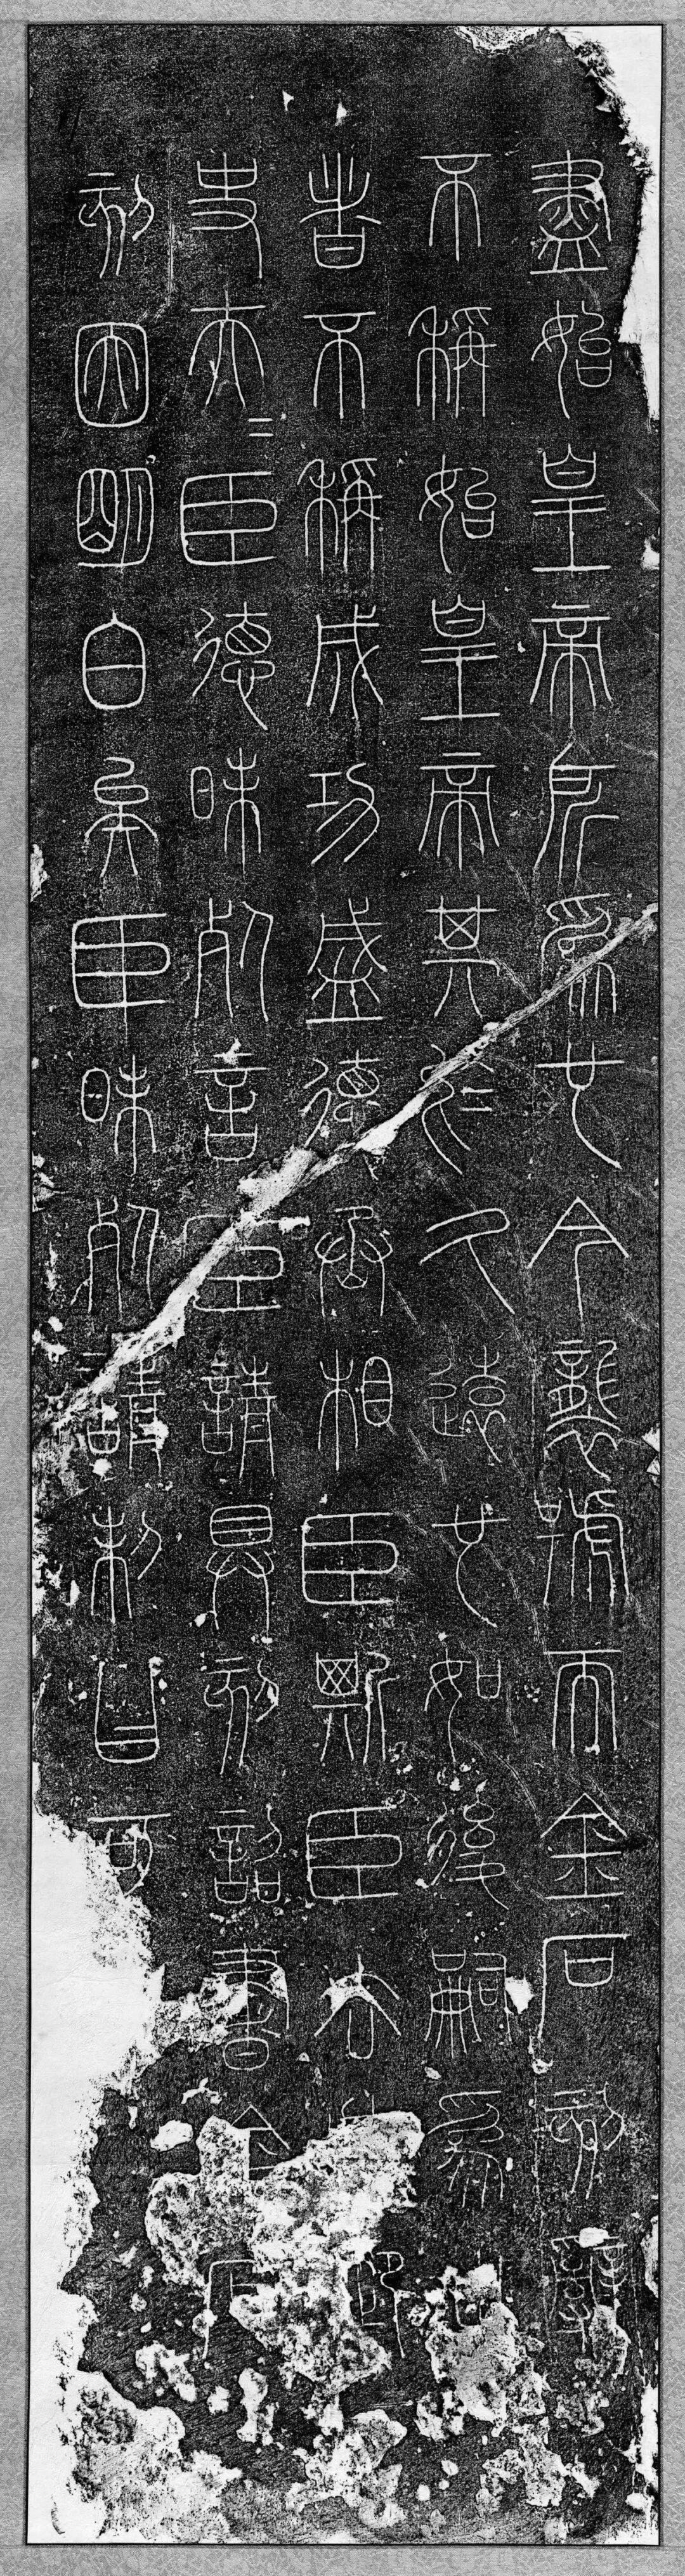 盡始皇帝所為也今襲號而金石刻辭
不稱始皇帝其於久遠也如後嗣為
者不稱成功盛德丞相臣斯臣去御
史夫＝臣德昧死言臣請具刻詔書金石
刻因明白矣臣昧死請制曰可